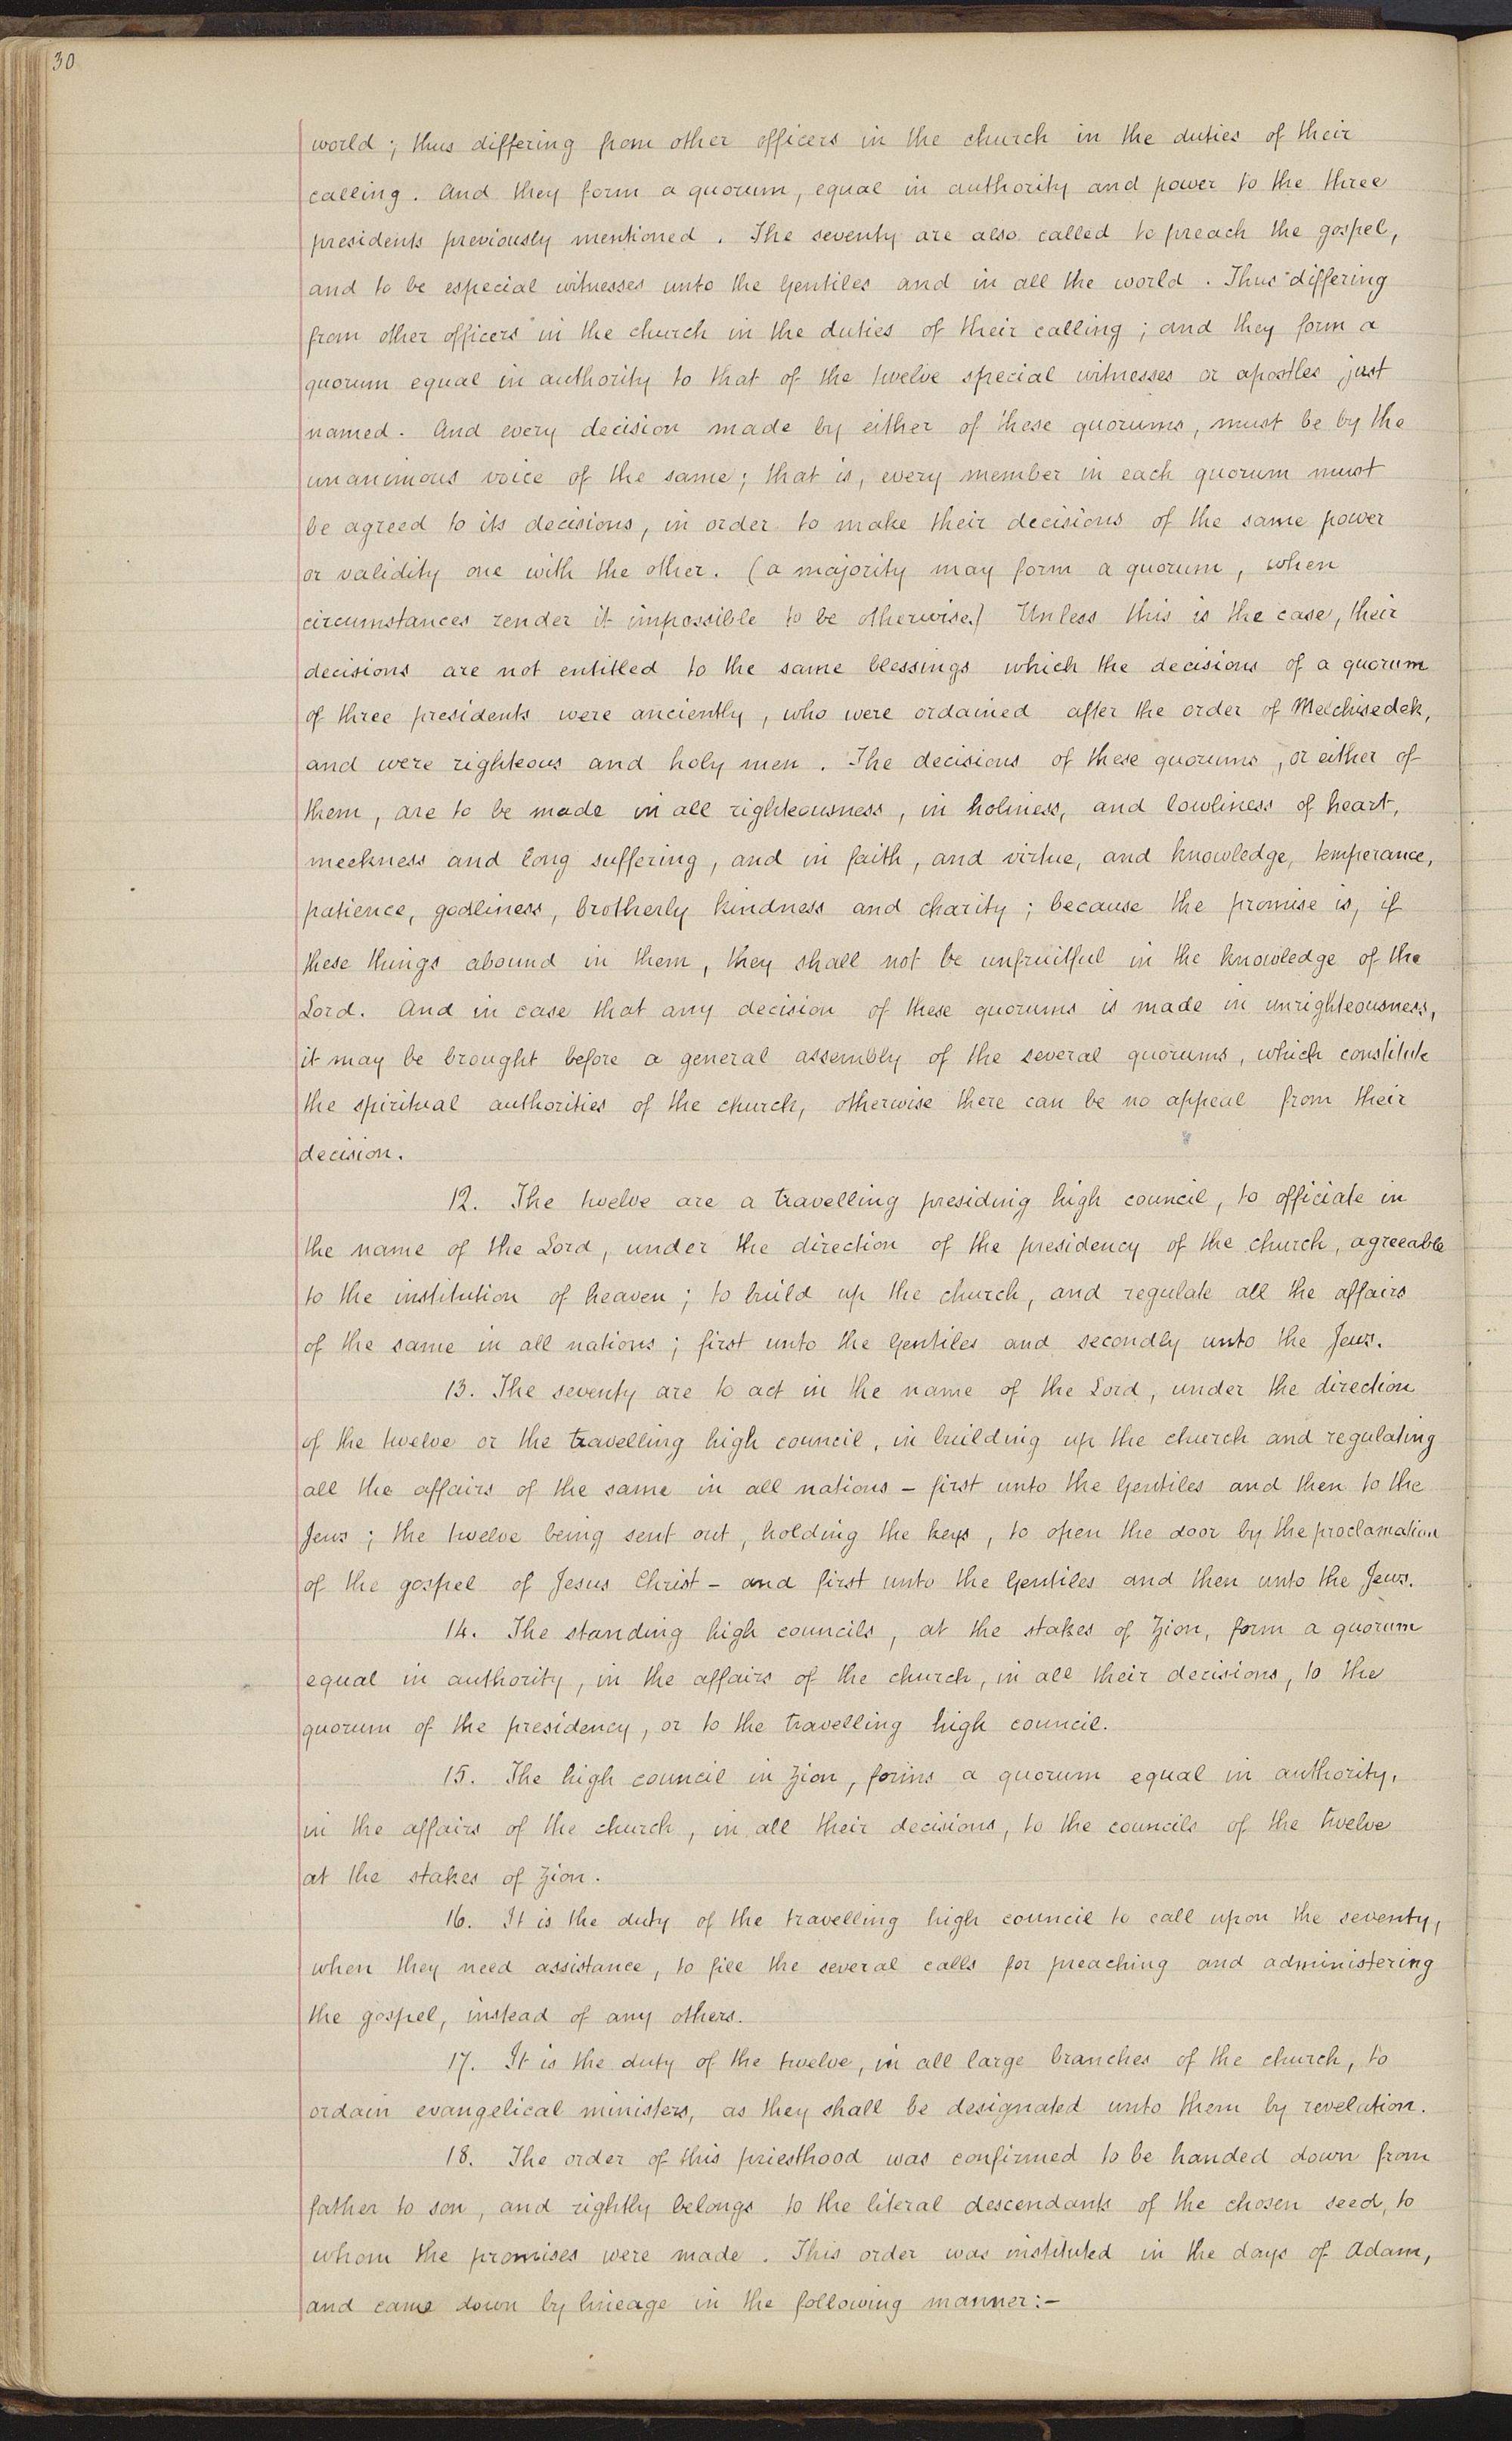 30
world ; thus differing from other officers in the church in the duties of their
calling. And they form a quorum, equal in authority and power to the three
presidents previously mentioned. The seventy are also called to preach the gospel,
and to be especial witnesses unto the Gentiles and in all the world. Thus "differing
from other officers" in the church in the duties of their calling ; and they form a
quorum equal in authority to that of the twelve special witnesses or apostles just
named. And every decision made by either of these quorums, must be by the
unanimous voice of the same; that is, every member in each quorum must
be agreed to its decisions, in order to make their decisions of the same power
or validity one with the other. (a majority may form a quorum, when
circumstances render it impossible to be otherwise.) Unless this is the case, their
decisions are not entitled to the same blessings which the decisions of a quorum
of three presidents were anciently, who were ordained after the order of Melchisedek,
and were righteous and holy men. The decisions of these quorums, or either of
them, are to be made in all righteousness, in holiness, and lowliness of heart,
meekness and long suffering, and in faith, and virtue, and knowledge, temperance,
patience, godliness, brotherly kindness and charity ; because the promise is, if
these things abound in them, they shall not be unfruitful in the knowledge of the
Lord. And in case that any decision of these quorums is made in unrighteousness,
it may be brought before a general assembly of the several quorums, which constitute
the spiritual authorities of the church, otherwise there can be no appeal from their
decision.
12. The twelve are a travelling presiding high council, to officiate in
the name of the Lord, under the direction of the presidency of the church, agreeable
to the institution of heaven ; to build up the church, and regulate all the affairs
of the same in all nations ; first unto the Gentiles and secondly unto the Jews.
13. The seventy are to act in the name of the Lord, under the direction
of the twelve or the travelling high council, in building up the church and regulating
all the affairs of the same in all nations – first unto the Gentiles and then to the
Jews ; the twelve being sent out, holding the keys, to open the door by the proclamation
of the gospel of Jesus Christ – and first unto the Gentiles and then unto the Jews.
14. The standing high councils, at the stakes of Zion, form a quorum
equal in authority, in the affairs of the church, in all their decisions, to the
quorum of the presidency, or to the travelling high council.
15. The high council in Zion, forms a quorum equal in authority,
in the affairs of the church, in all their decisions, to the councils of the twelve
at the stakes of Zion.
16. It is the duty of the travelling high council to call upon the seventy,
when they need assistance, to fill the several calls for preaching and administering
the gospel, instead of any others.
17. It is the duty of the twelve, in all large branches of the church, to
ordain evangelical ministers, as they shall be designated unto them by revelation.
18. The order of this priesthood was confirmed to be handed down from
father to son, and rightly belongs to the literal descendants of the chosen seed, to
whom the promises were made. This order was instituted in the days of Adam,
and came down by lineage in the following manner:–